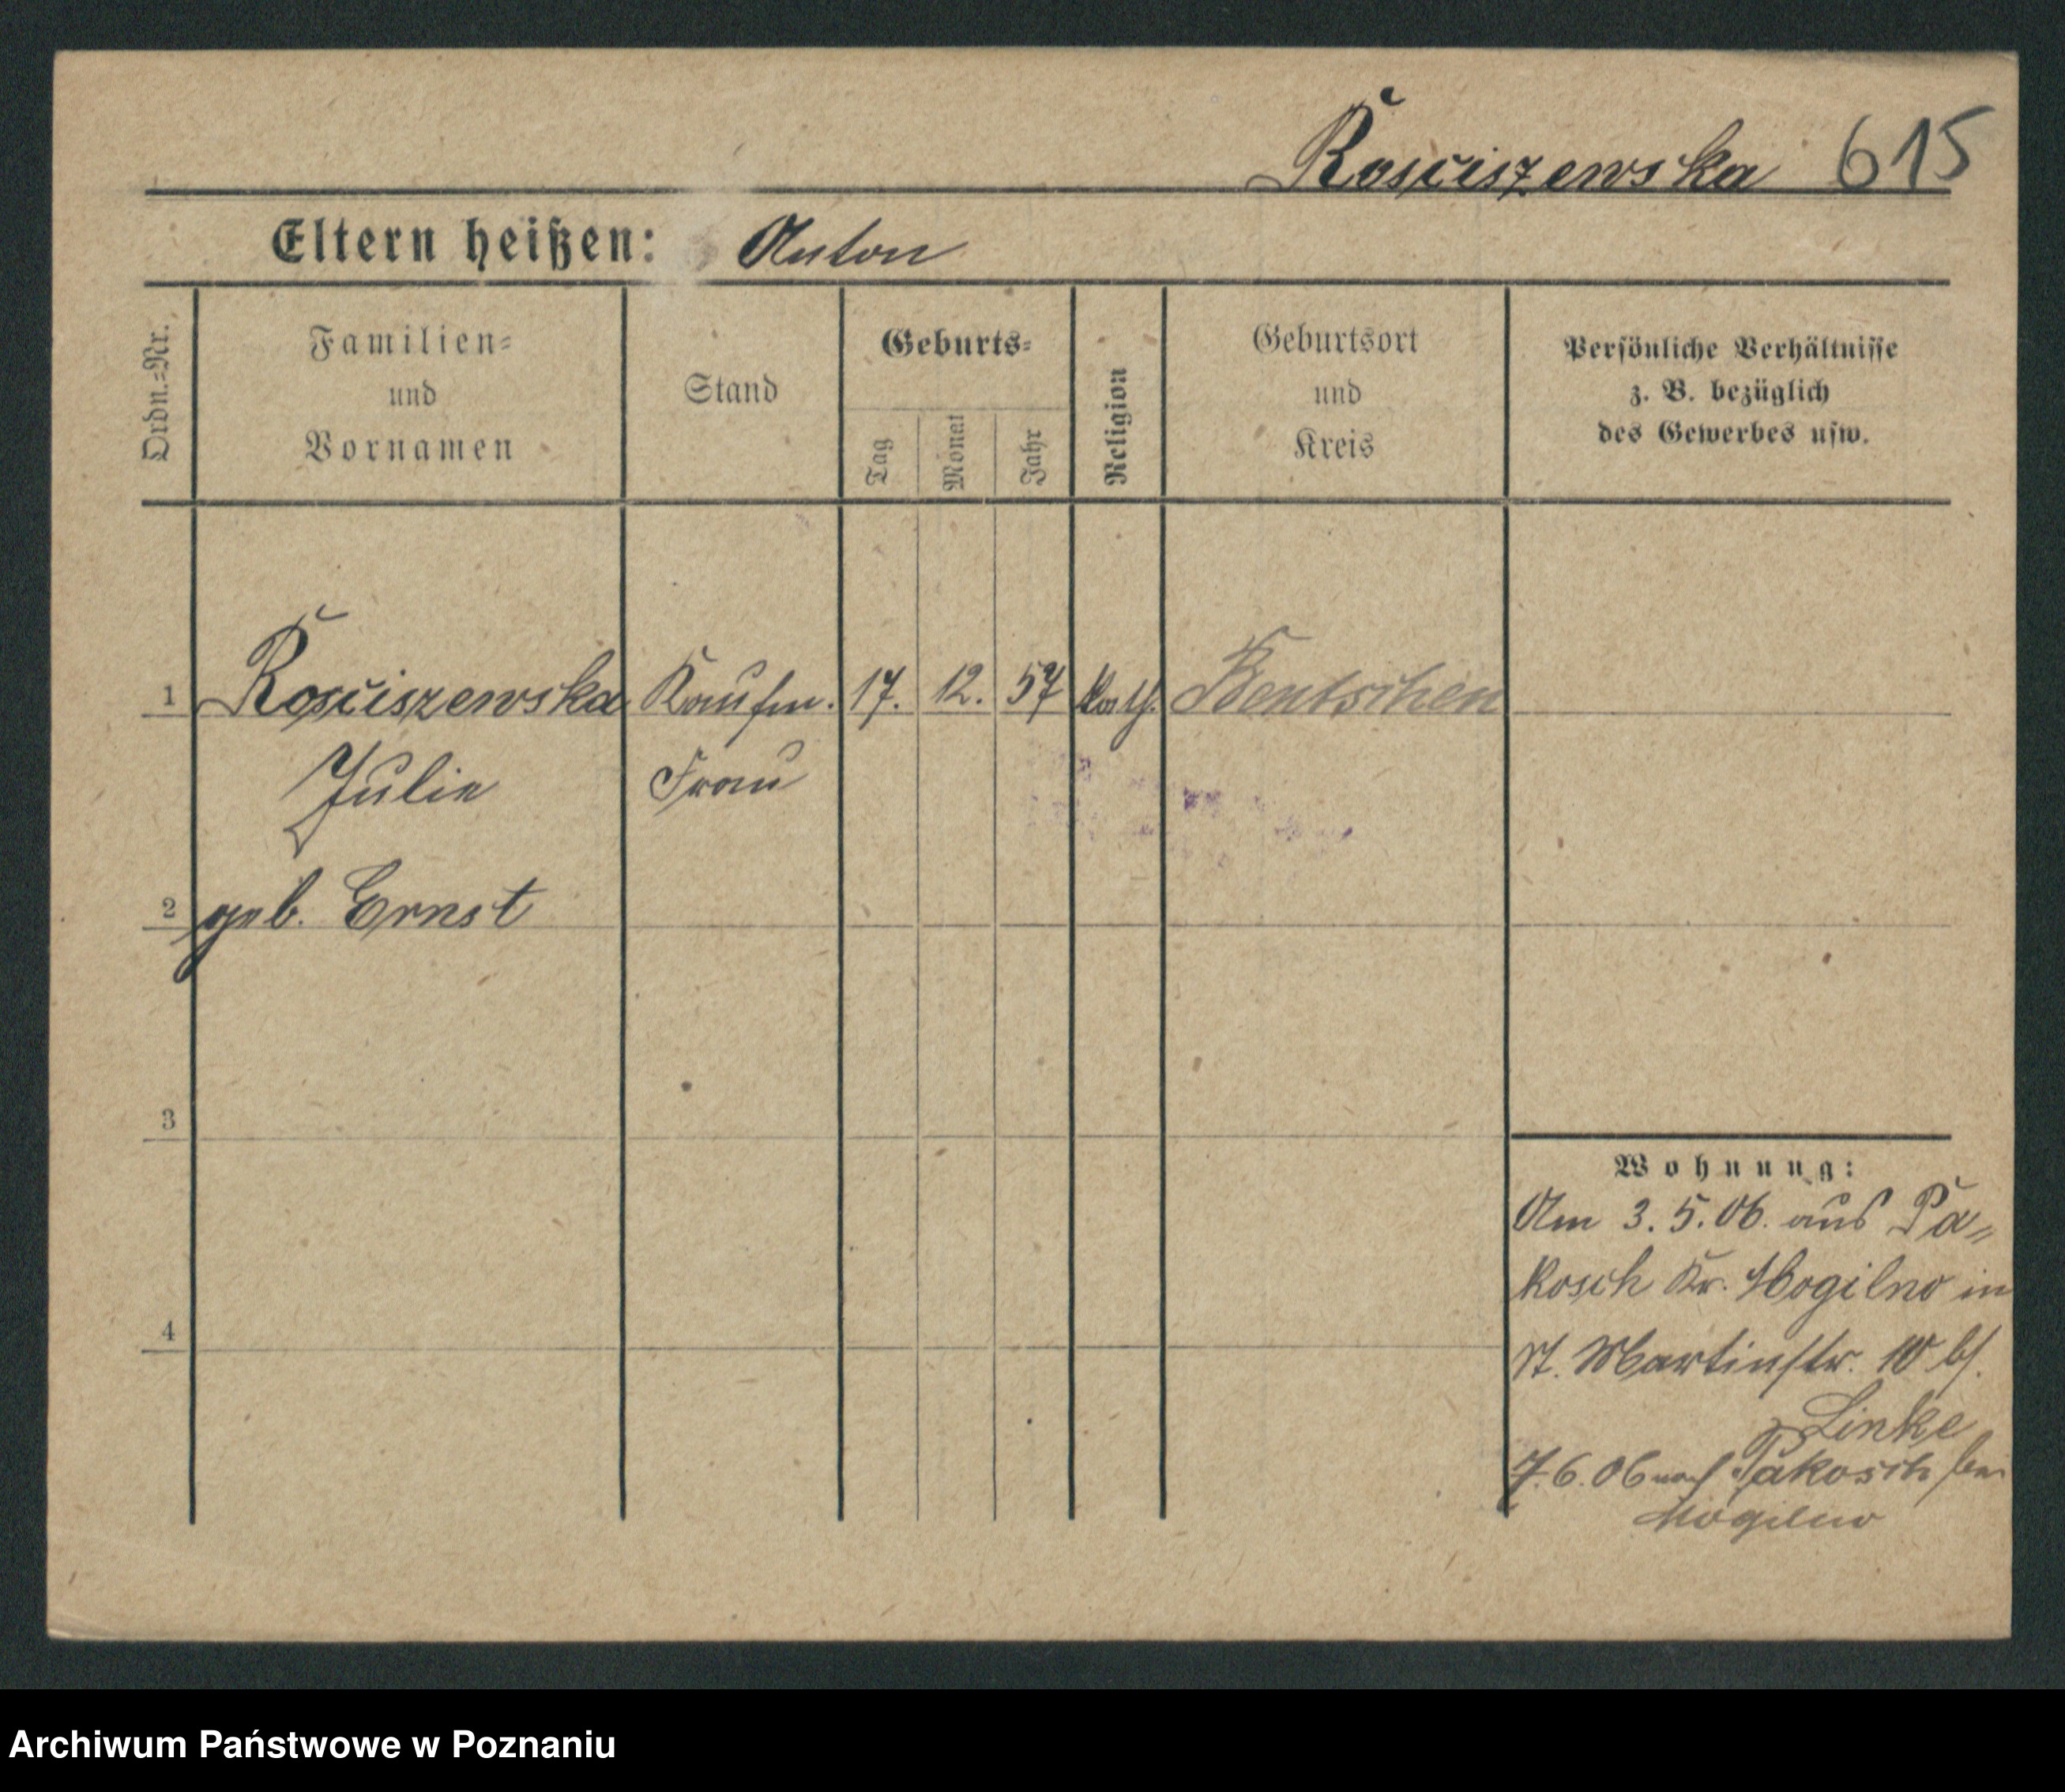 Rosciszewska 615
Eltern heißen: Anton
Ordn.=Nr.
Familien=
und
Vornamen
Stand
Geburts=
Tag
Monat
Jahr
Religion
Geburtsort
und
Kreis
Persönliche Verhältnisse
z. B. bezüglich
des Gewerbes usw.
1 Rosciszewska Kaufm. 17. 12. 57 kath. Bentschen
Julie Frau
2 geb. Ernst
3
4
Wohnung:
Am 3. 5. 06. aus Pa=
kosch Kr. Mogilno in
St. Martinstr. 10 b/.
Linke
7. 6. 06 nach Pakosch bei
Mogilno
Archiwum Państwowe w Poznaniu